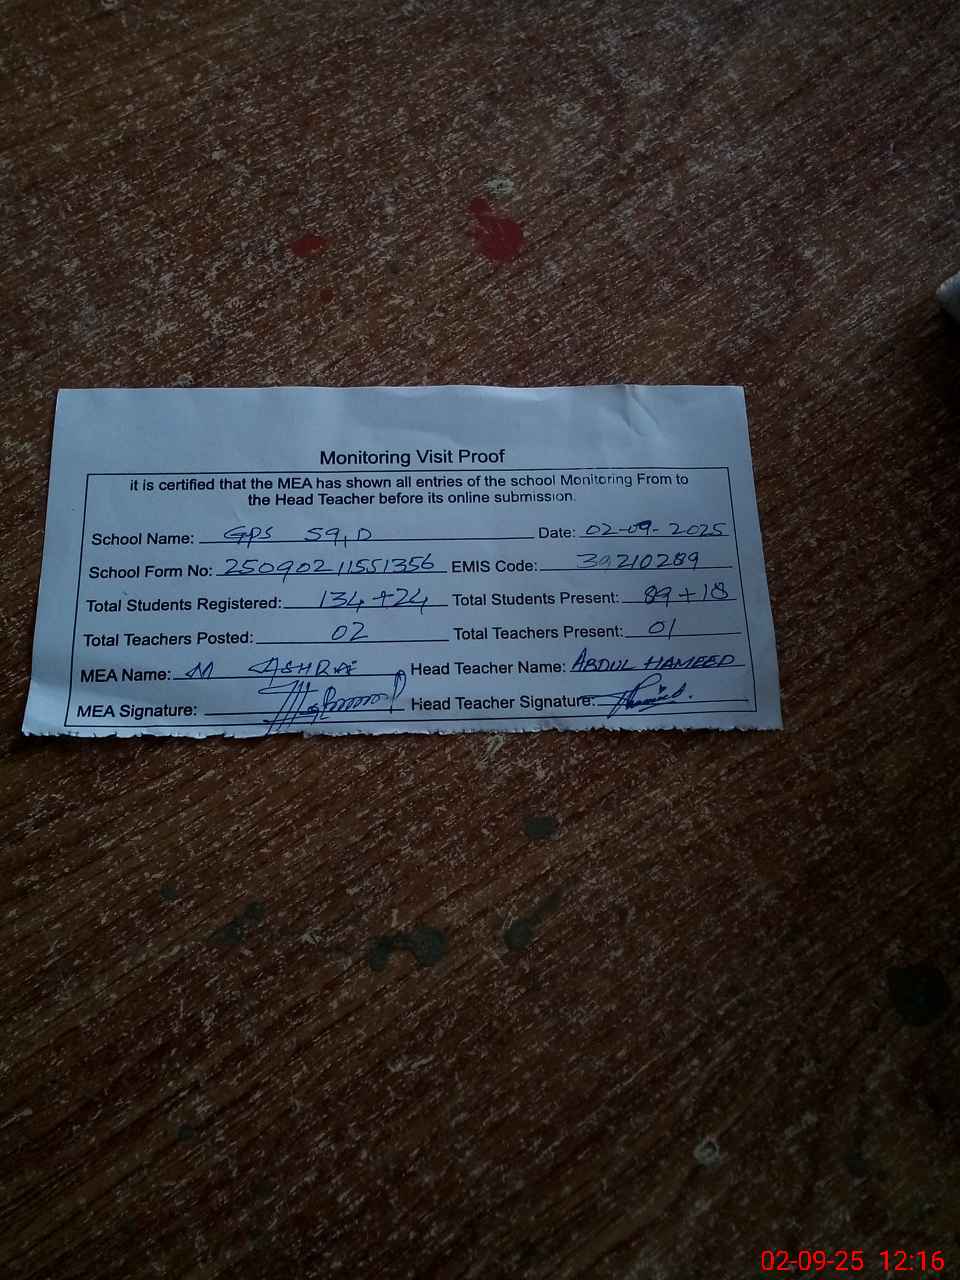 Monitoring Visit Proof
it is certified that the MEA has shown all entries of the school Monitoring From to
the Head Teacher before its online submission.
School Name: GPS 59, D Date: 02-09-2025
School Form No: 25090211551356 EMIS Code: 39210289
Total Students Registered: 134+24 Total Students Present: 89+18
Total Teachers Posted: 02 Total Teachers Present: 01
MEA Name: M ASHRAF Head Teacher Name: ABDUL HAMEED
MEA Signature: Head Teacher Signature:
02-09-25 12:16